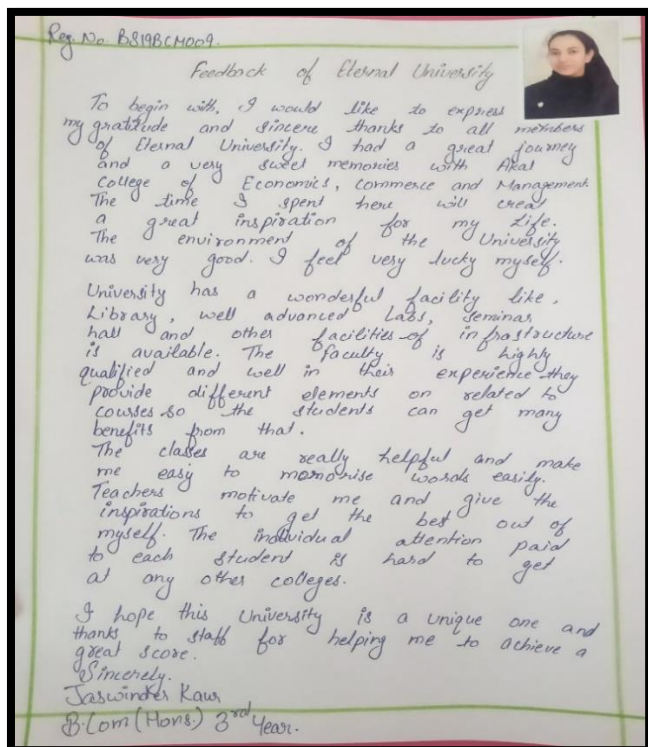 Reg. No. BS19BCM009.
Feedback of Eternal University
To begin with, I would like to express
my gratitude and sincere thanks to all members
of Eternal University. I had a great journey
and a very sweet memories with Akal
College of Economics, Commerce and Management.
The time I spent here will creat
a great inspiration for my life.
The environment of the University
was very good. I feel very lucky myself.
University has a wonderful facility like,
Library, well advanced Labs, Seminar
hall and other facilities of infrastructure
is available. The faculty is highly
qualified and well in their experience they
provide different elements on related to
courses so the students can get many
benefits from that.
The classes are really helpful and make
me easy to memorise words easily.
Teachers motivate me and give the
inspirations to get the best out of
myself. The individual attention paid
to each student is hard to get
at any other colleges.
I hope this University is a unique one and
thanks to staff for helping me to achieve a
great score.
Sincerely.
Jaswinder Kaur
B.Com (Hons.) 3rd Year.